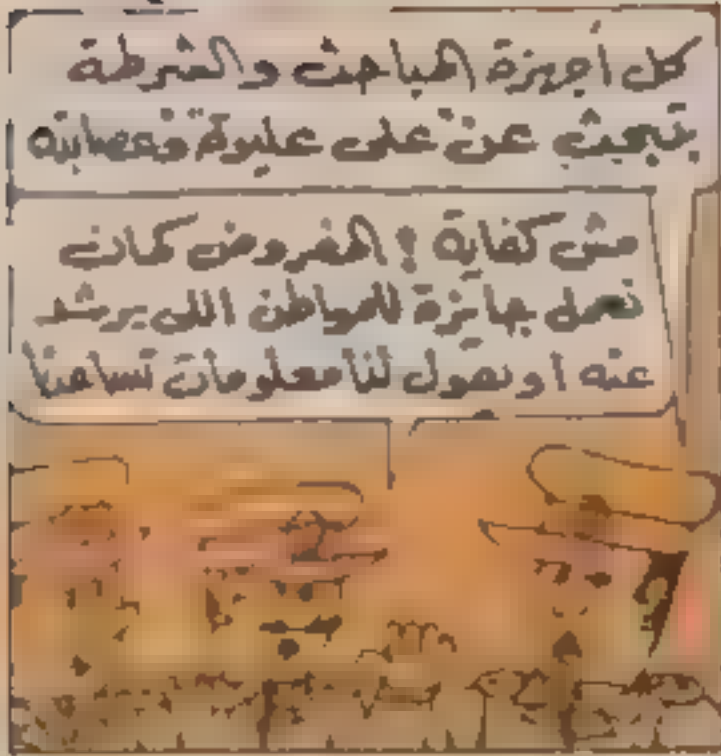 كل أجهزة المباحث والشرطة
بتبحث عن على عليوة وعصابته
مش كفاية ! المفروض كمان
نعمل جايزة للمواطن اللى يرشد
عنه او يقول لنا معلومات تساعدنا